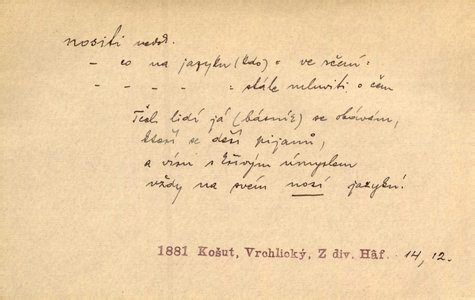 nositi nedok.
– co na jazyku (kdo) = ve rčení:
– – – – = stále mluviti o čem
Těch lidí já (básník) se obávám,
kteří se děsí pijanů,
a víru s lživým úmyslem
vždy na svém nosí jazyku!
1881 Košut, Vrchlický, Z div. Háf. 14, 12.